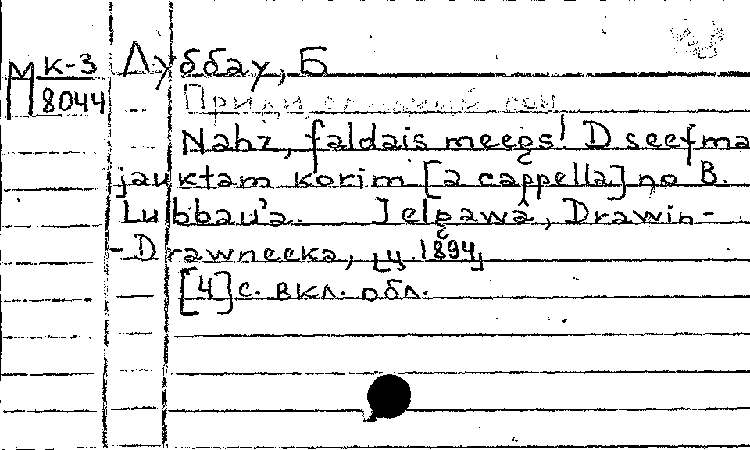 М К-3 Луббау, Б
П 8044 Приди сладкий сон
Nahz, faldais meegs! Dseefma
jauktam korim [a cappella] no B.
Lubbau'a. Jelgawâ, Drawin-
-Drawneeka, [ц. 1894]
[4] с. вкл. обл.